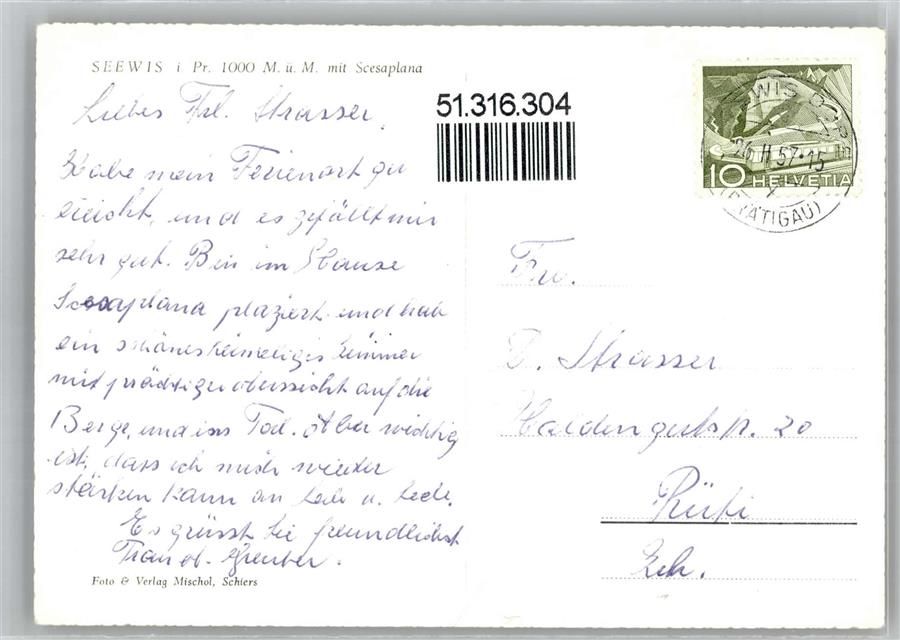 SEEWIS i Pr. 1000 M. ü. M. mit Scesaplana
Liebes Frl. Strasser,
Habe mein Ferienort gu
ereicht, und es gefällt mir
sehr gut. Bin im Hause
Scesaplana plaziert und hab
ein schönes heimeliges Zimmer
mit prächtiger übersicht auf die
Berge, und ins Tal. Aber wichtig
ist, dass ich mich wieder
stärken kann an Leib u. Seele.
Es grüsst Sie freundlichst
Gruber.
Foto & Verlag Mischol, Schiers
51.316.304
SEEWIS DORF
26.II.57-15
(PRÄTIGAU)
10 HELVETIA
Frl.
Strasser
Haldengutstr. 20
Rüti
Zch.